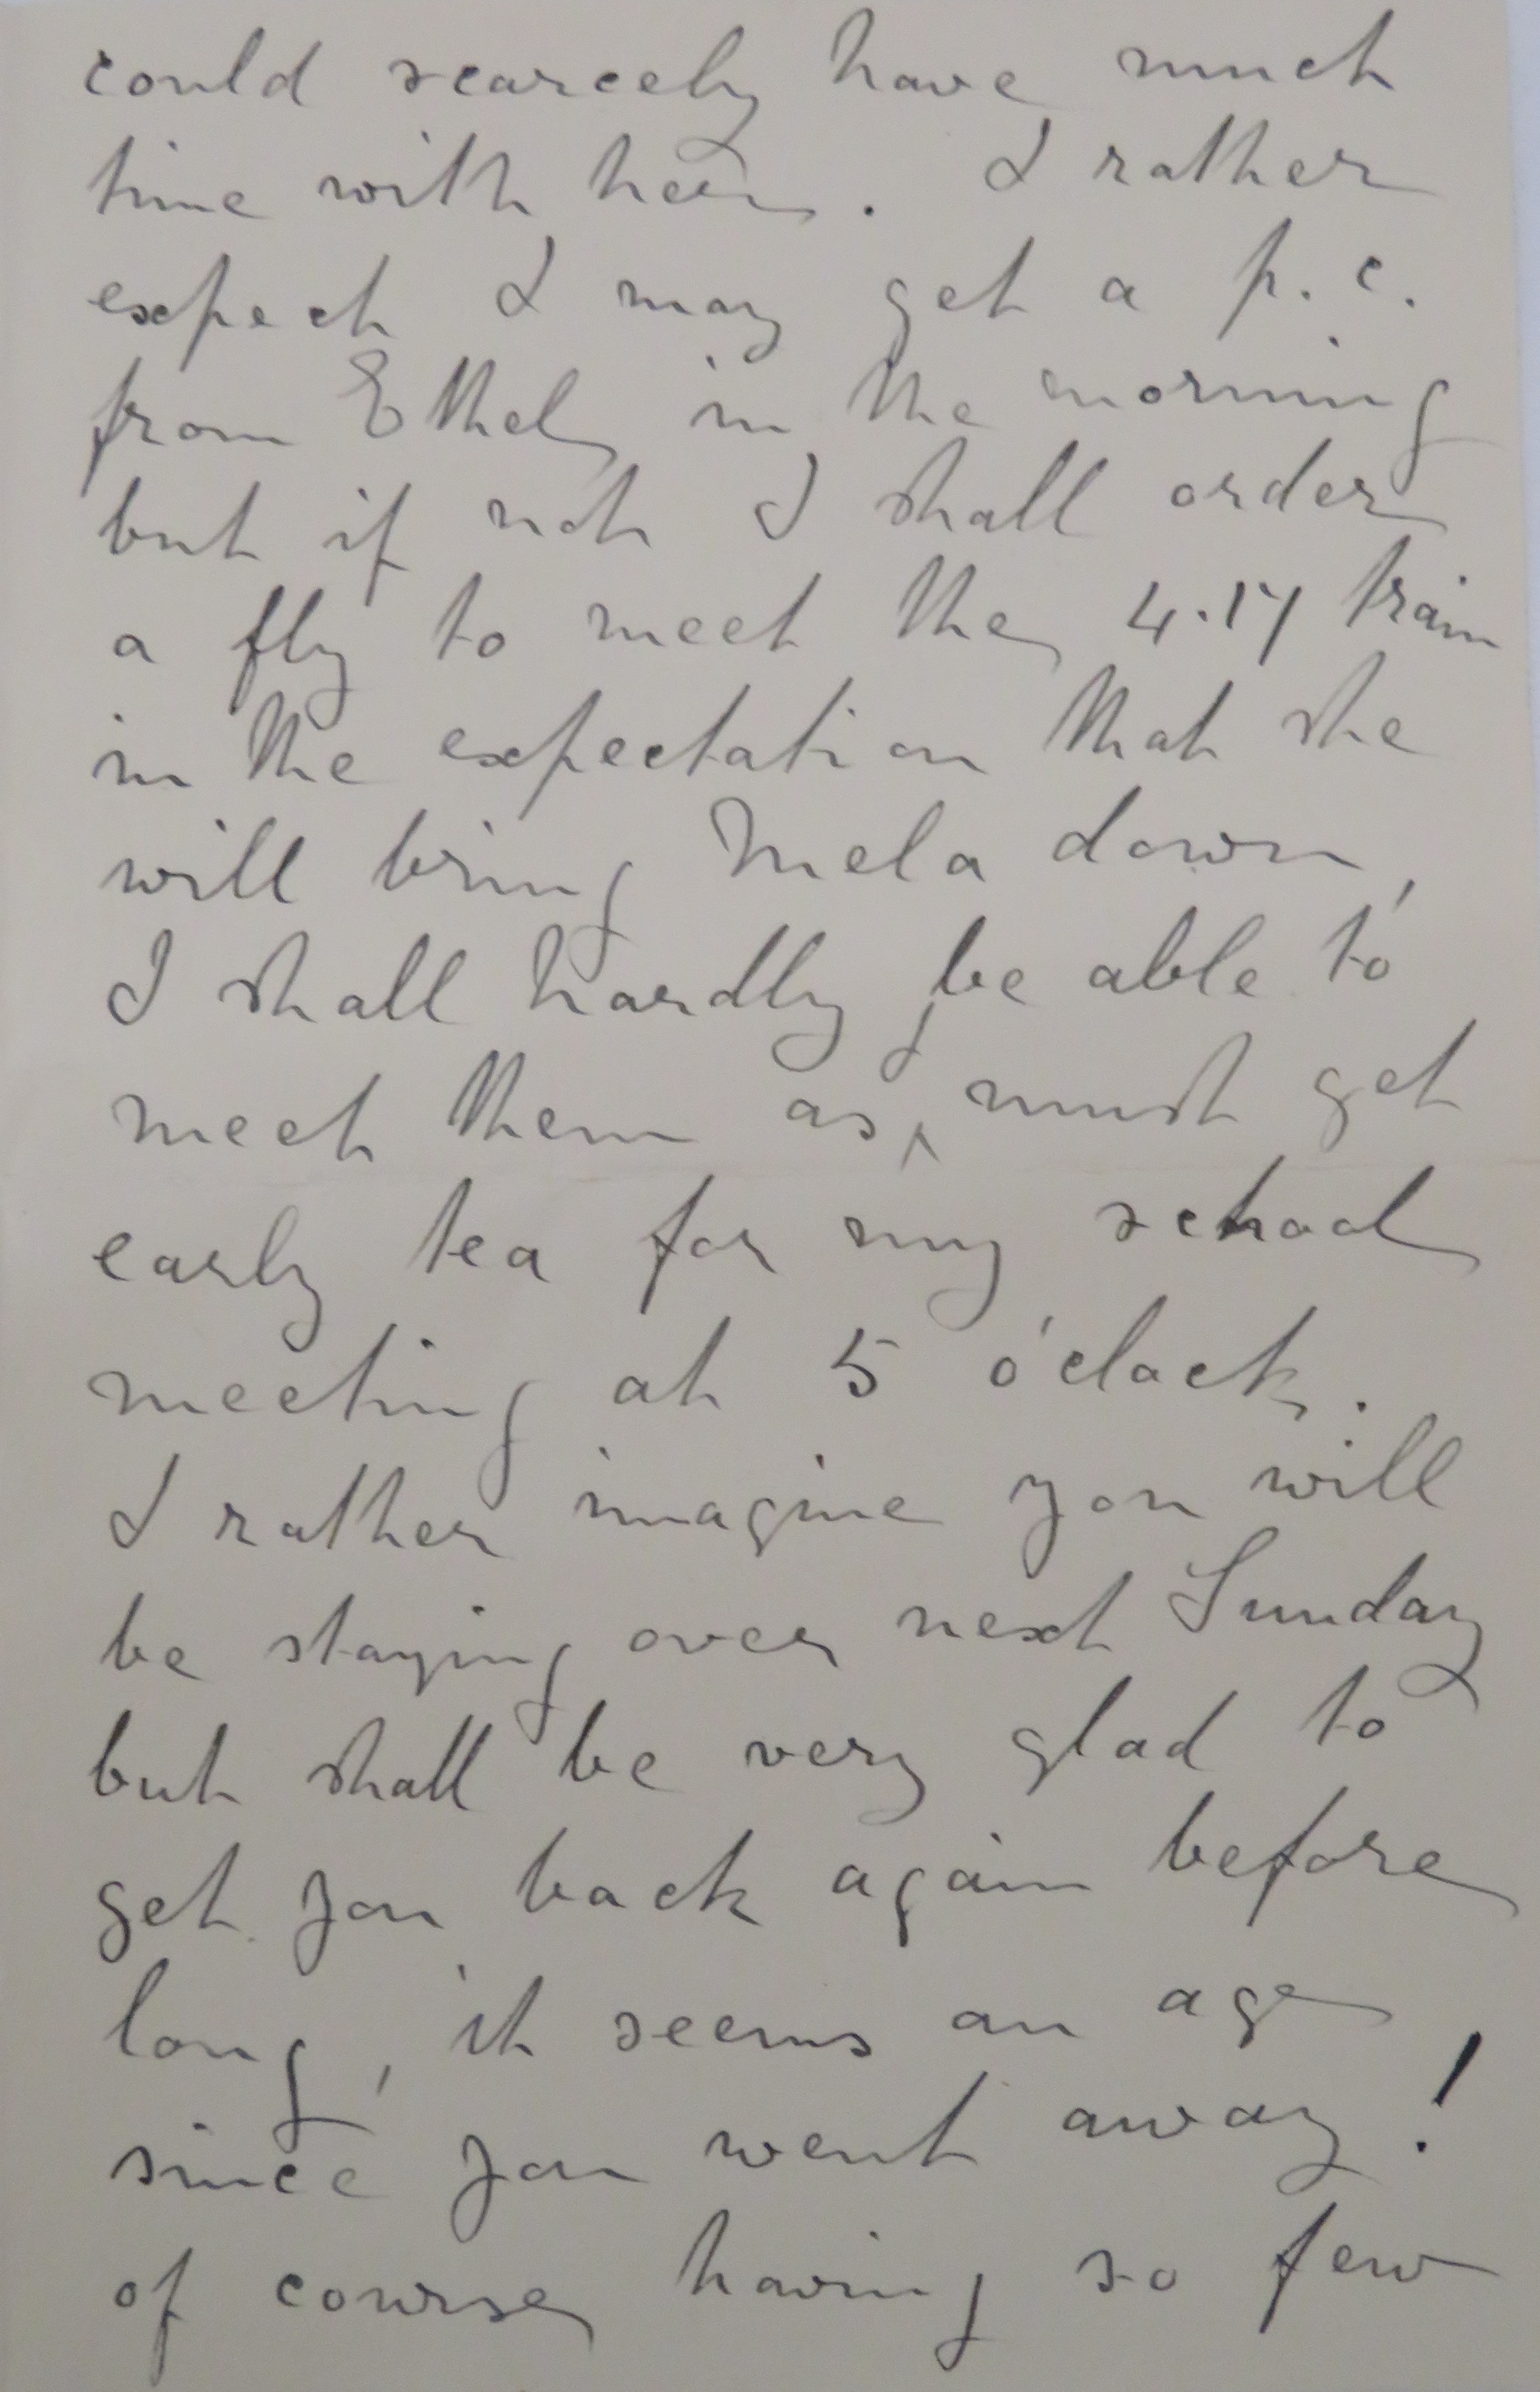 could scarcely have much
time with her. I rather
expect I may get a p.c.
from Ethel in the morning
but if not I shall order
a fly to meet the 4.17 train
in the expectation that she
will bring Mela down,
I shall hardly be able to
meet them as I must get
early tea for my school
meeting at 5 o'clock.
I rather imagine you will
be staying over next Sunday
but shall be very glad to
get you back again before
long, it seems an age
since you went away!
of course having so few